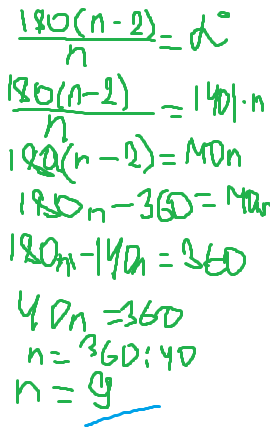 180(n-2)/n = α°
180(n-2)/n = 140|·n
180(n-2) = 140n
180n - 360 = 140n
180n - 140n = 360
40n = 360
n = 360:40
n = 9